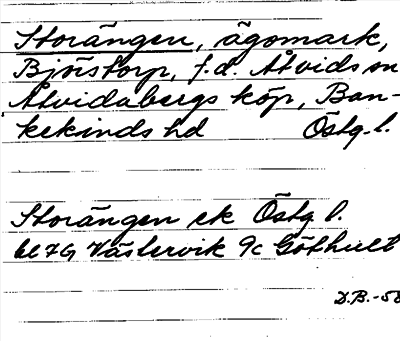 Storängen, ägomark,
Björstorp, f.d. Åtvids sn
Åtvidabergs köp, Ban-
kekinds hd Östg. l.
Storängen ek Östg l.
bl 7G Västervik 9c Göthult
D.B.-58